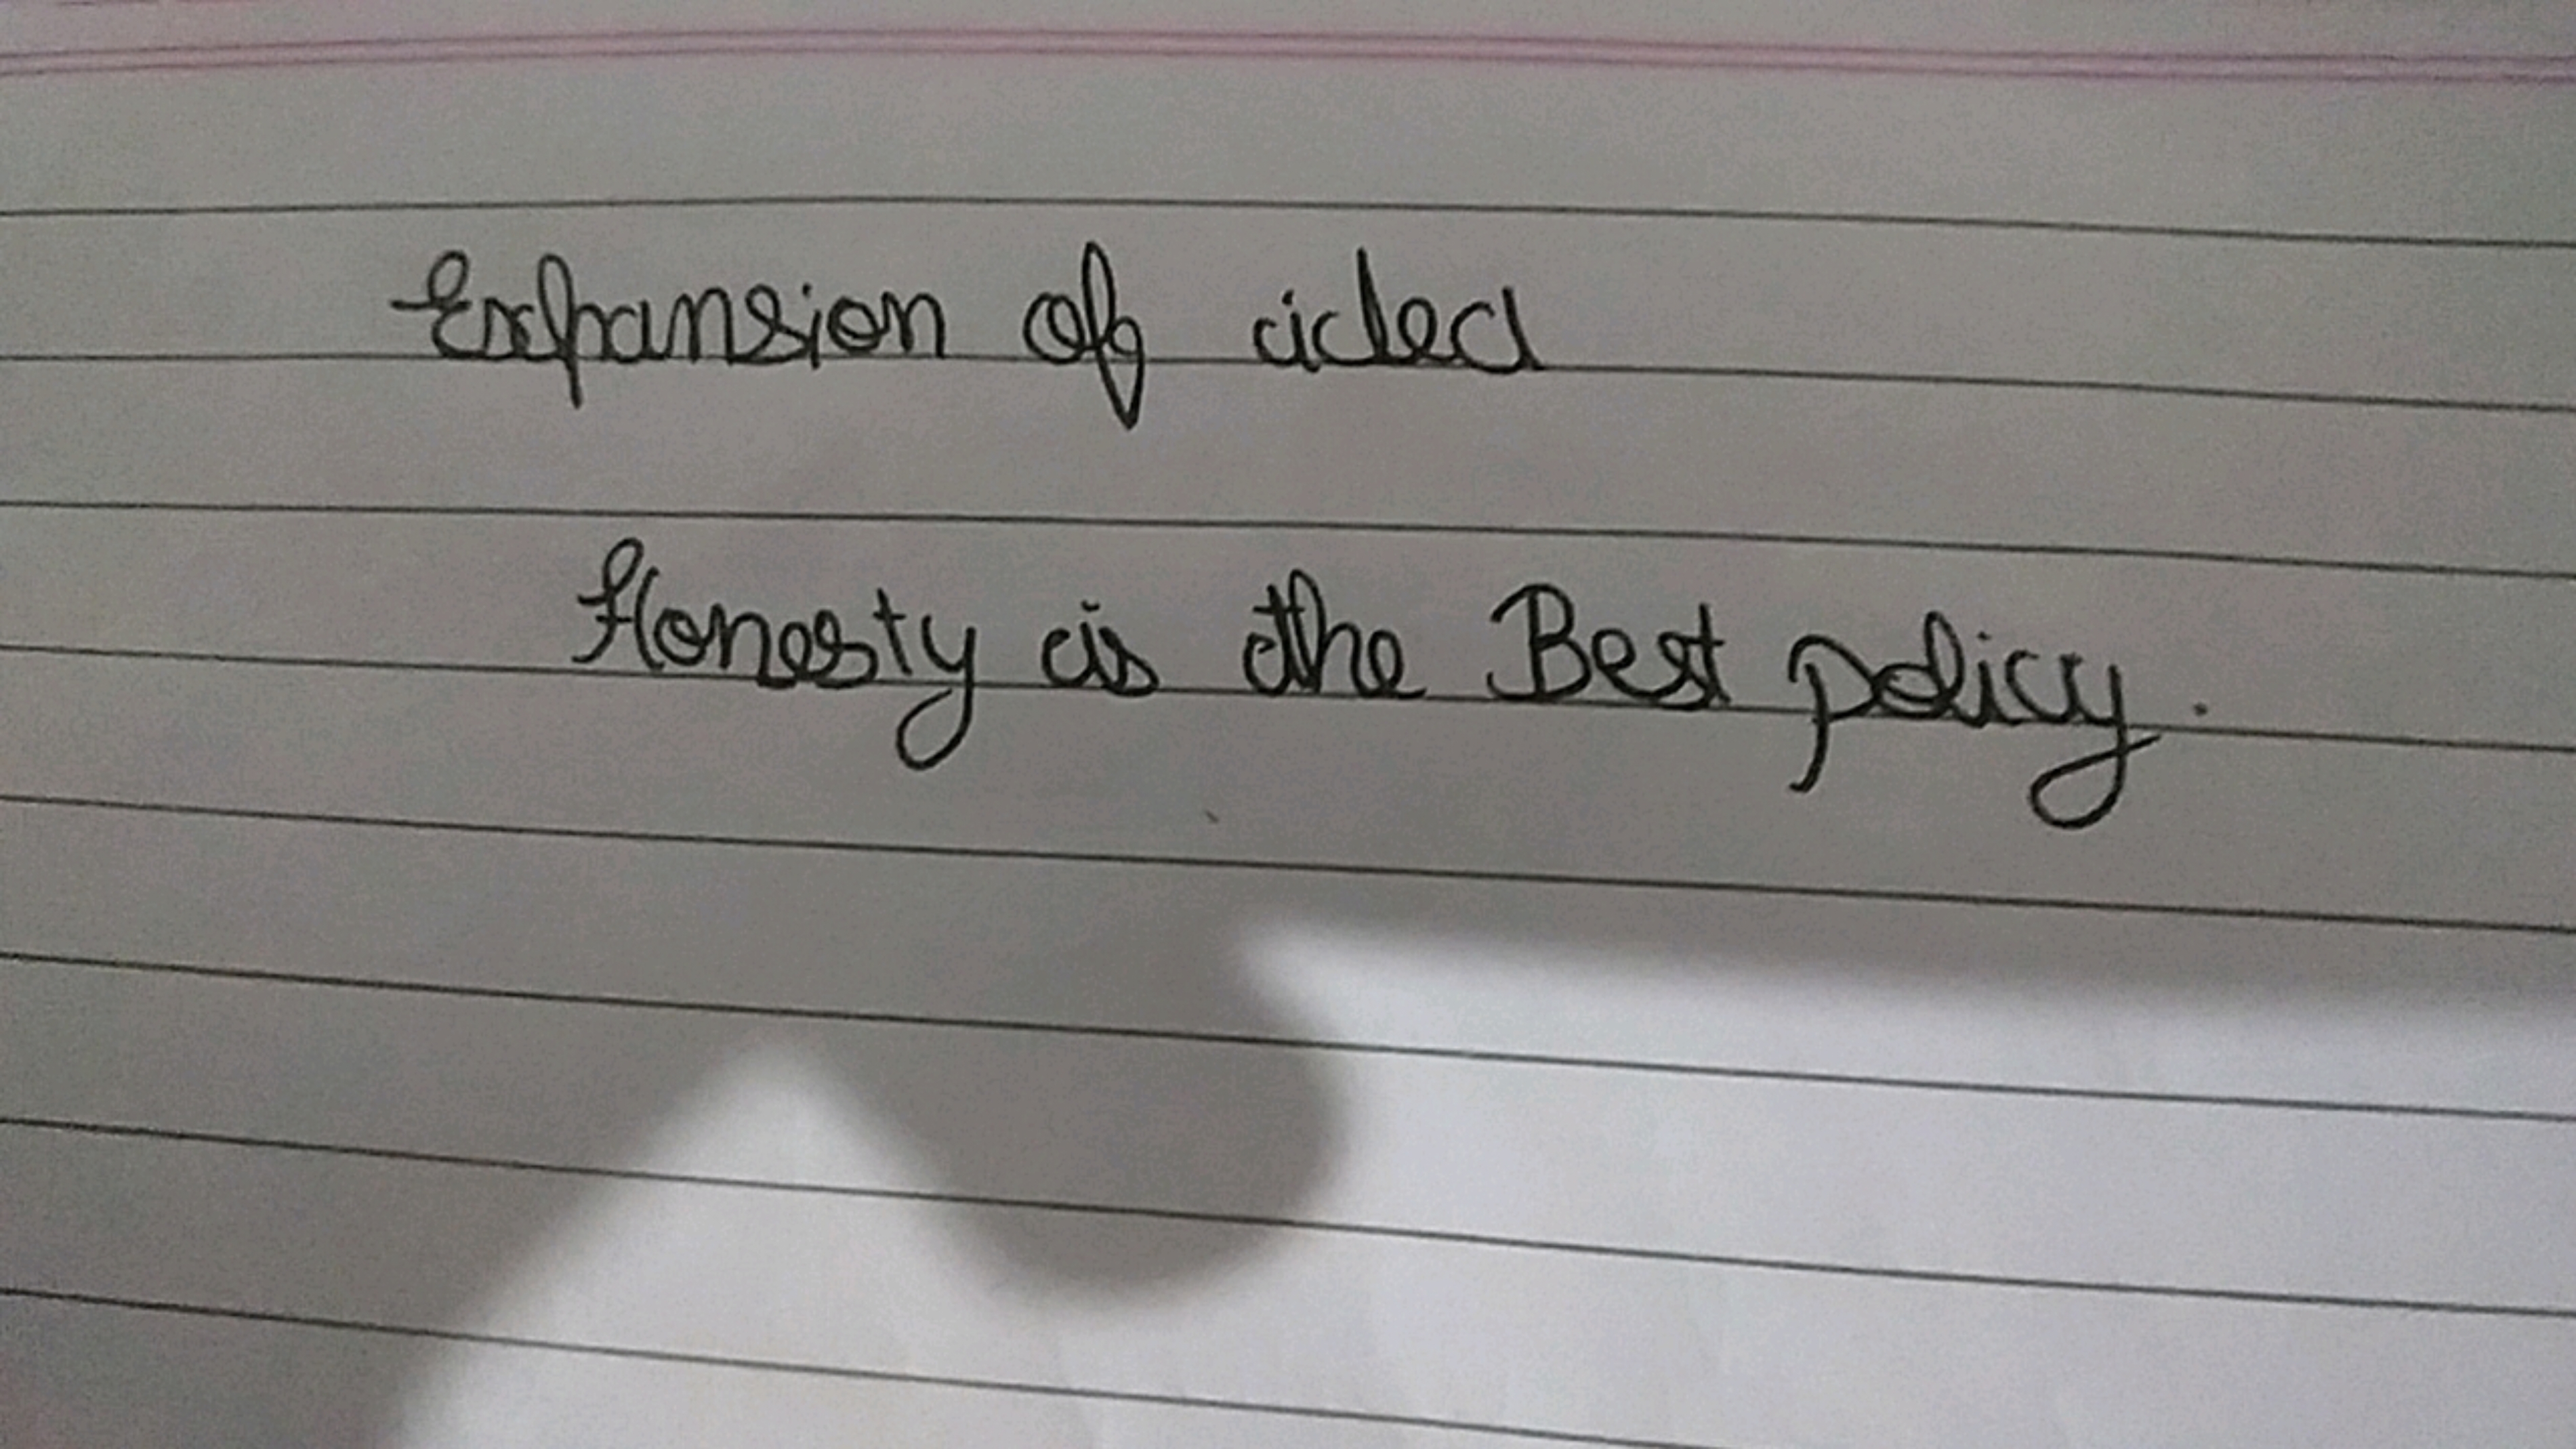 Expansion of idea
Honesty is the Best policy.